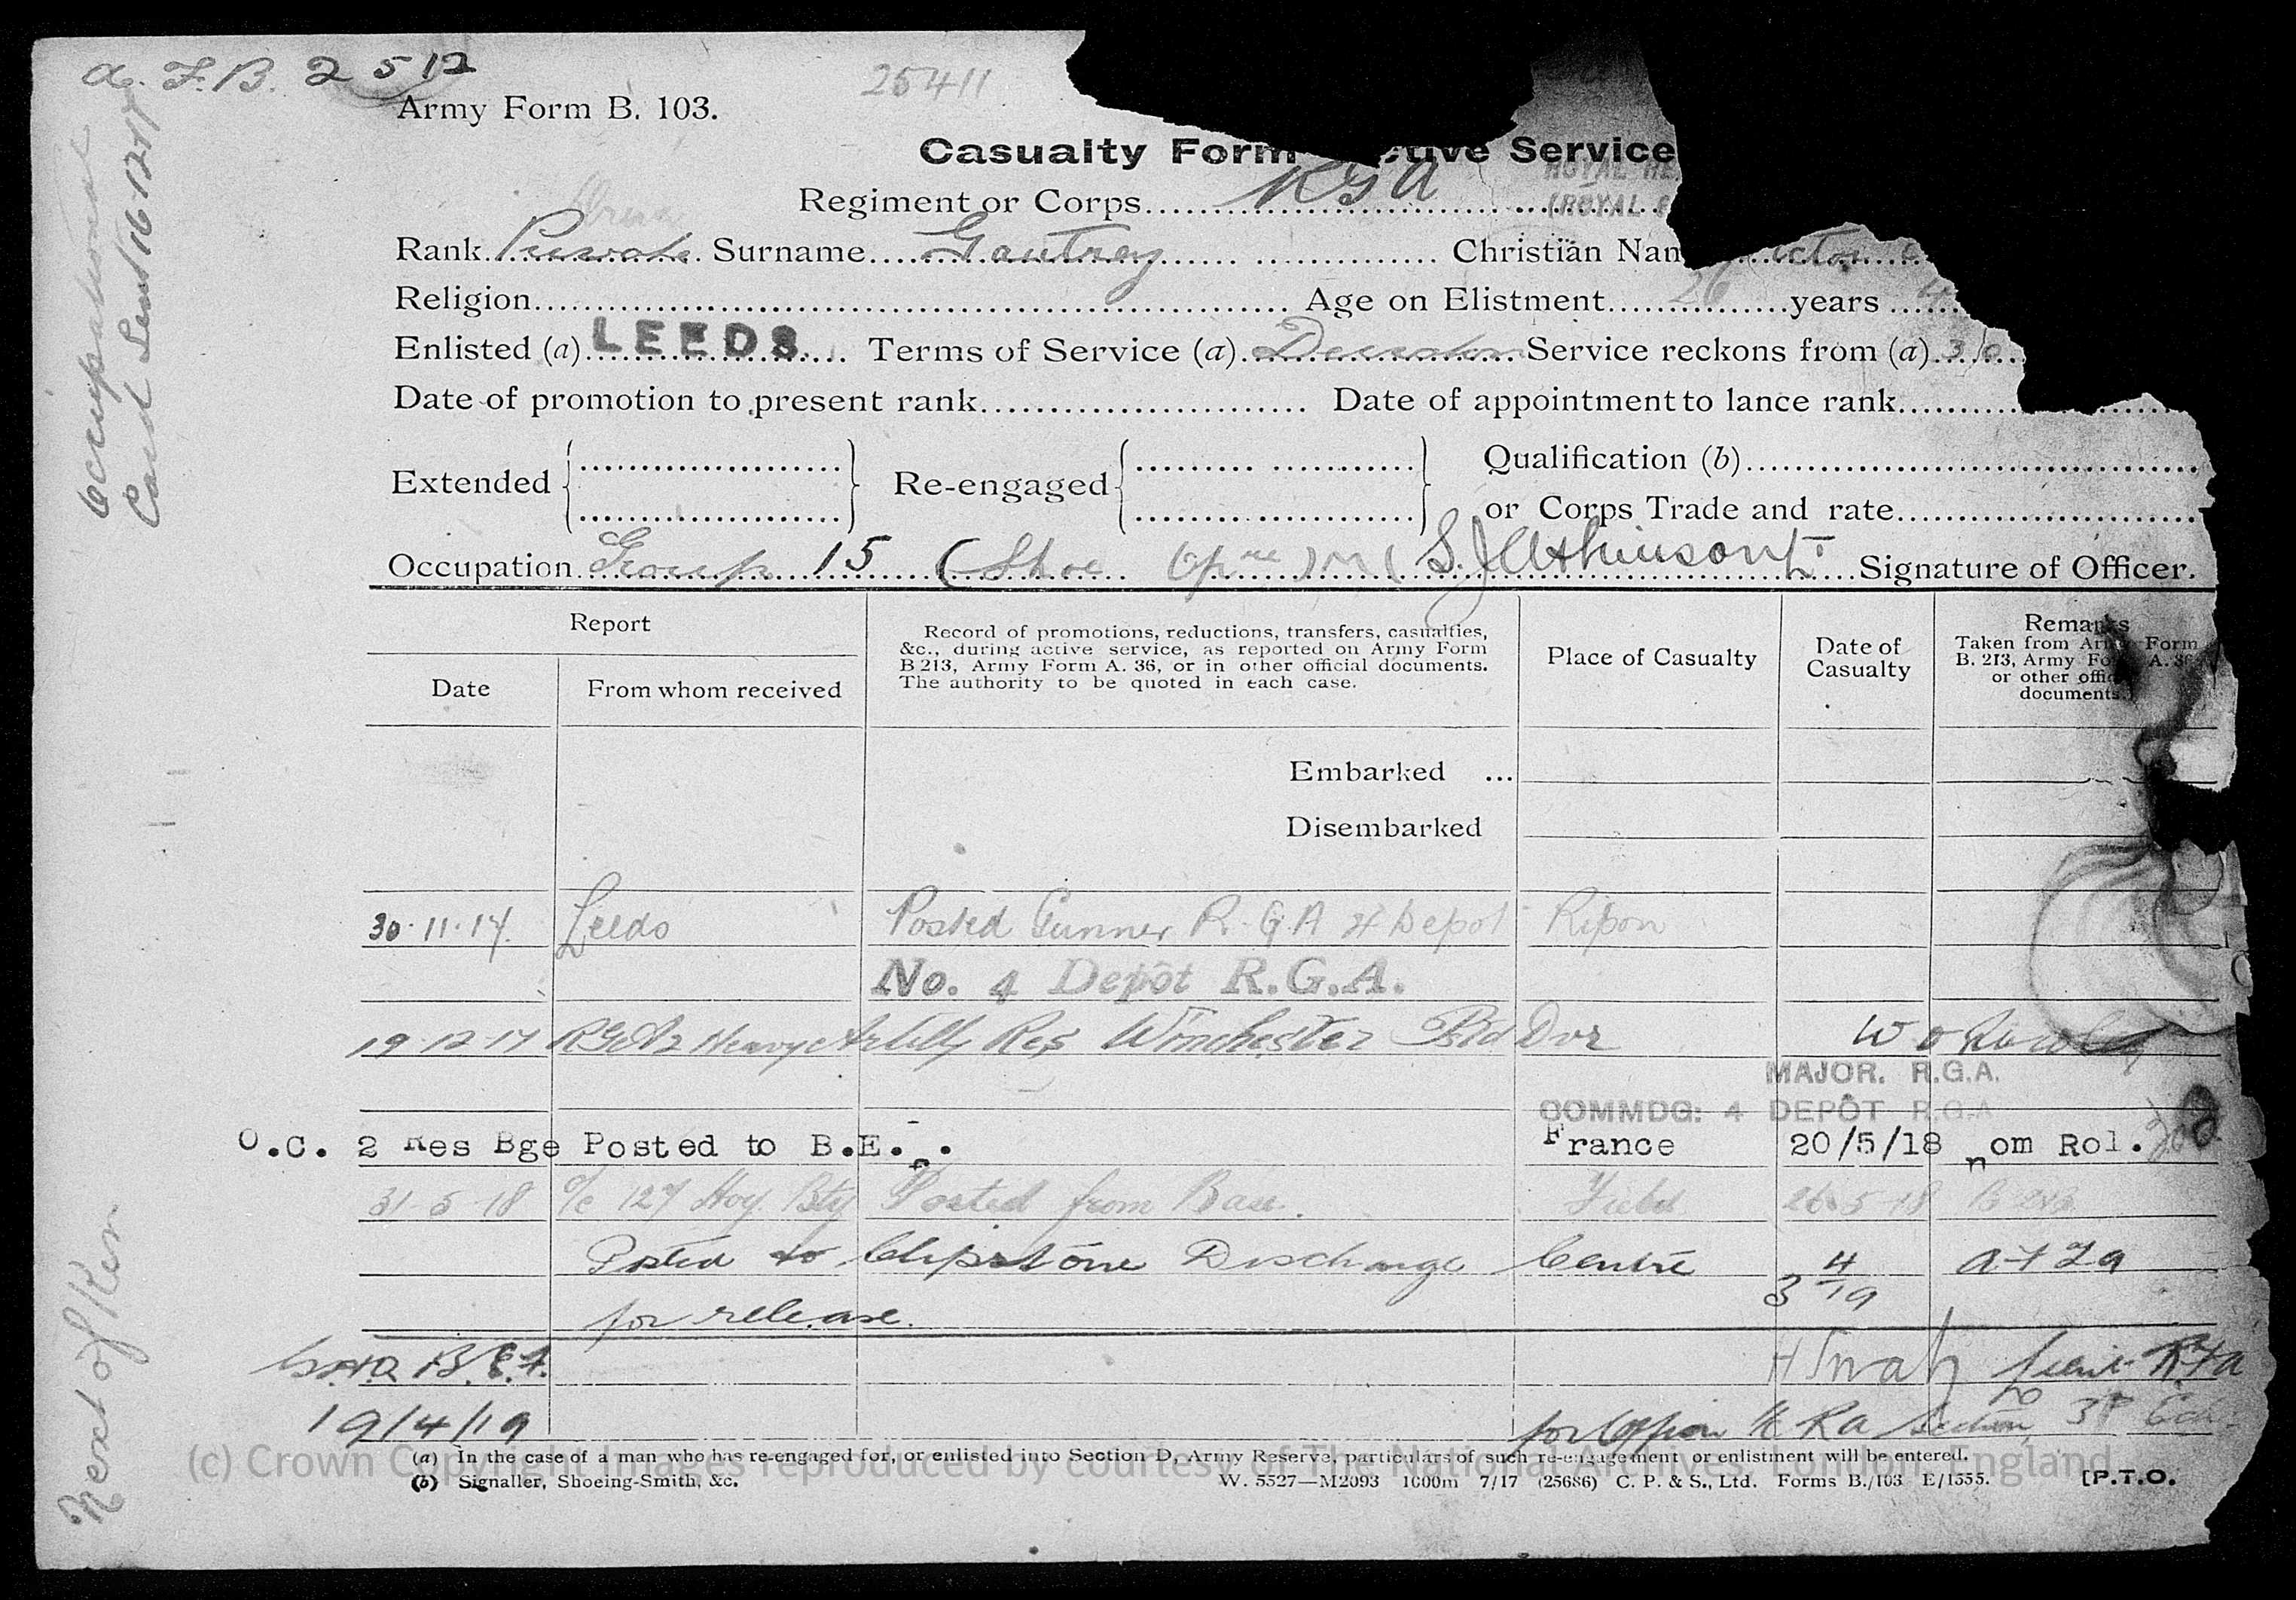 A.F.B. 2512
25411
Army Form B. 103.
Casualty Form ctive Service
Regiment or Corps RGA
ROYAL
(ROYAL
Rank Private Surname Gautrey Christian Nam ictor
Religion Age on Elistment 26 years 4
Enlisted (a) LEEDS Terms of Service (a) Duration Service reckons from (a) 30
Date of promotion to present rank Date of appointment to lance rank
Extended Re-engaged Qualification (b)
or Corps Trade and rate
Occupation Group 15 (Shoe Op) S.J. Atkinson Signature of Officer.
Report
Date From whom received
Record of promotions, reductions, transfers, casualties,
&c., during active service, as reported on Army Form
B 213, Army Form A. 36, or in other official documents.
The authority to be quoted in each case.
Place of Casualty
Date of
Casualty
Remarks
Taken from Army Form
B. 213, Army Form A. 36
or other official
documents.
Embarked ...
Disembarked
30.11.17 Leeds Posted Gunner R.G.A 4 Depot Ripon
No. 4 Depôt R.G.A.
19-12-17 RGA 2 Heavy Artilly Res Winchester Ptd Dvr
MAJOR. R.G.A.
COMMDG: 4 DEPÔT R.G.A
O.C. 2 Res Bge Posted to B.E. . France 20/5/18 om Rol.
31-5-18 O/c 127 Hvy. Bty Posted from Base. Field 26-5-18 B 213
Posted to Clipstone Discharge Centre 3/4/19
for release.
G.H.Q. B.E.F.
Lieut. RFA
19/4/19 for Officer i/c RA Section, 3rd Ech.
(a) In the case of a man who has re-engaged for, or enlisted into Section D, Army Reserve, particulars of such re-engagement or enlistment will be entered.
(b) Signaller, Shoeing-Smith, &c. W. 5527—M2093 1000m 7/17 (25686) C. P. & S., Ltd. Forms B./103 E/1555. [P.T.O.
(c) Crown Copyright Images reproduced by courtesy of The National Archives, London, England
Occupational
Card Sent 16-12-17
Next of Kin